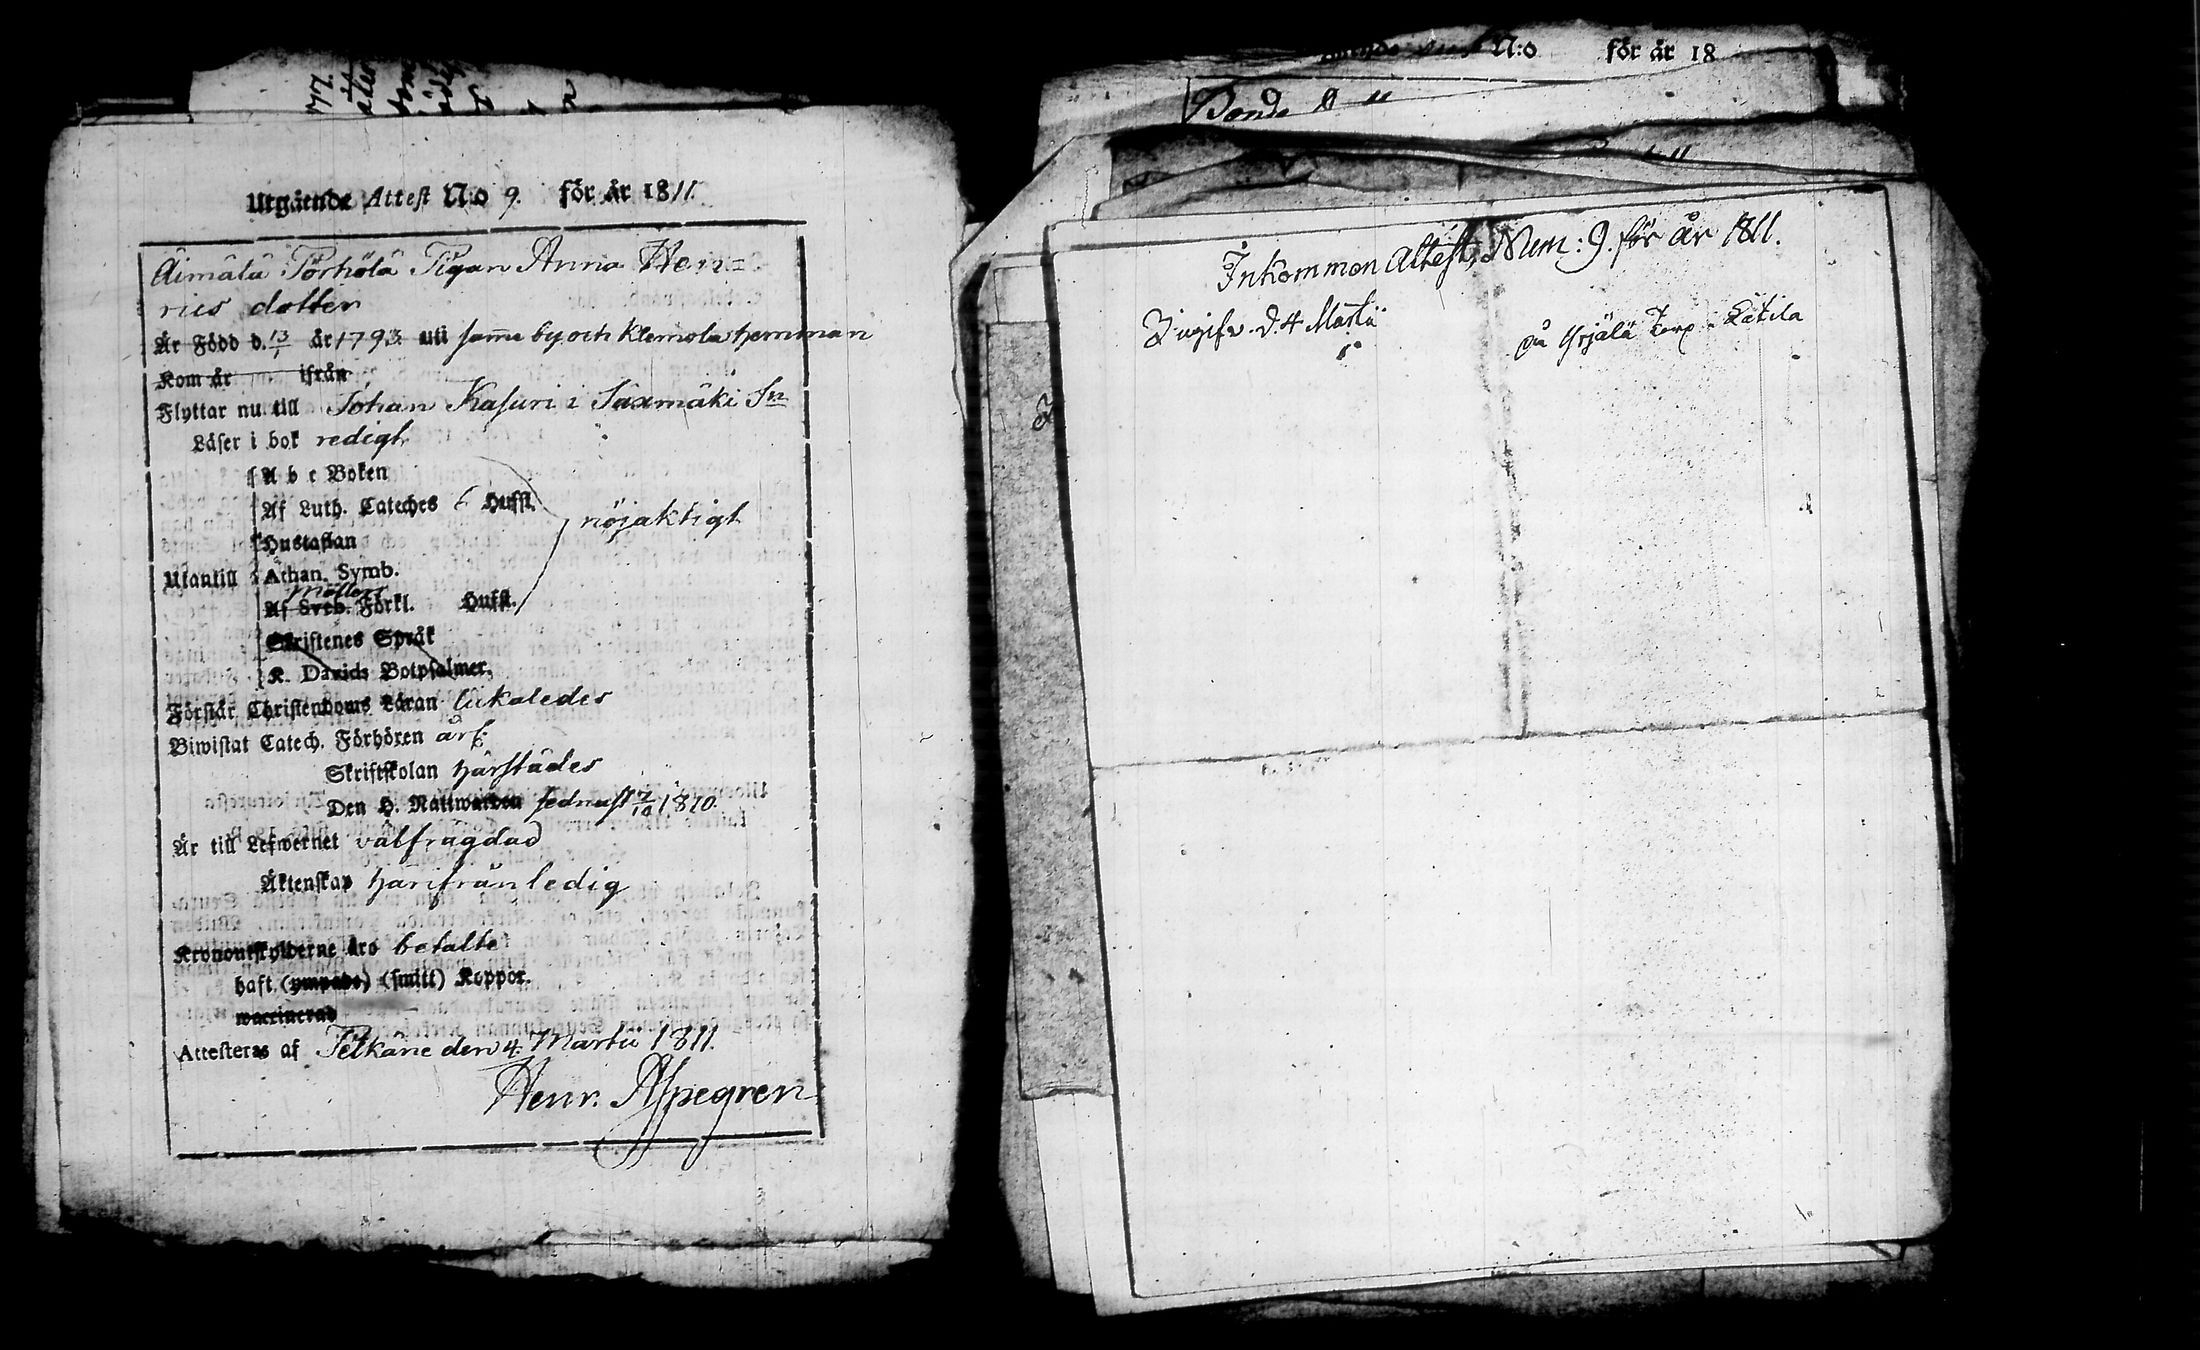 Utgående Attest N:o 9. för år 1811.
Äimälä Pörhölä Pigan Anna Hen=
rics dotter
Är Född d. 13/1 år 1793. uti samma by och Klemola hemman
Kom år ifrån
Flyttar nu till Johan Kasuri i Säxmäki Sn
Läser i bok redigt
A b c Boken
Af Luth. Cateches Hufst.
nöjaktigt
Hustaflan
Utantill Athan. Symb.
Möllers
Af Sveb. Förkl. Hufst.
Skriftenes Språk
K. Davids Botpsalmer.
Förstår Christendoms Läran likaledes
Biwistat Catech. Förhören årl:
Skriftskolan härstädes
Den H. Nattwarden sednast 7/10 1810.
Är till Lefwernet välfrägdad
Äktenskap härifrån ledig
Kronoutskylderne äro betalte
haft (ympade) (smitt) Koppor.
waccinerad
Attesteras af Pelkäne den 4 Martii 1811.
Henr. Aspegren
N:o för år 18
Bonde
Inkommen Attest, Num: 9. för år 1811.
d. 4 Martii
på Yrjälä Torp Lätila